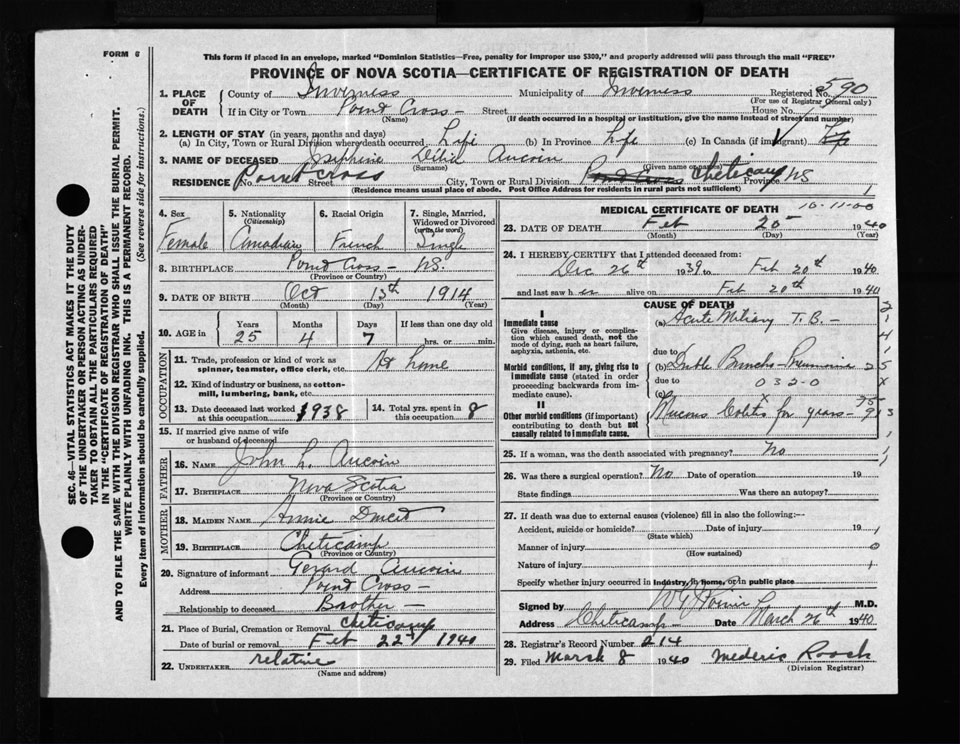 FORM 6
This form if placed in an envelope, marked "Dominion Statistics—Free, penalty for improper use $300," and properly addressed will pass through the mail "FREE"
PROVINCE OF NOVA SCOTIA—CERTIFICATE OF REGISTRATION OF DEATH
1. PLACE OF DEATH County of Inverness Municipality of Inverness Registered No. 590
(For use of Registrar General only)
If in City or Town Point Cross – Street House No.
(Name) (If death occurred in a hospital or institution, give the name instead of street and number)
2. LENGTH OF STAY (in years, months and days)
(a) In City, Town or Rural Division where death occurred Life (b) In Province Life (c) In Canada (if immigrant) Life
3. NAME OF DECEASED Josephine Délia Aucoin
(Surname) (Given name or names)
RESIDENCE No. Point Cross Street City, Town or Rural Division Point Cross Cheticamp Province NS
(Residence means usual place of abode. Post Office Address for residents in rural parts not sufficient)
4. Sex Female
5. Nationality (Citizenship) Canadian
6. Racial Origin French
7. Single, Married, Widowed or Divorced (write the word) Single
8. BIRTHPLACE Point Cross – NS.
(Province or Country)
9. DATE OF BIRTH Oct 13th 1914
(Month) (Day) (Year)
10. AGE in Years 25 Months 4 Days 7 If less than one day old hrs. or min.
OCCUPATION
11. Trade, profession or kind of work as spinner, teamster, office clerk, etc. At home
12. Kind of industry or business, as cotton-mill, lumbering, bank, etc.
13. Date deceased last worked at this occupation 1938
14. Total yrs. spent in this occupation 8
15. If married give name of wife or husband of deceased
FATHER
16. NAME John L. Aucoin
17. BIRTHPLACE Nova Scotia
(Province or Country)
MOTHER
18. MAIDEN NAME Annie Doucet
19. BIRTHPLACE Cheticamp
(Province or Country)
20. Signature of informant Gerard Aucoin
Address Point Cross –
Relationship to deceased Brother –
21. Place of Burial, Cremation or Removal Cheticamp
Date of burial or removal Feb 22nd 1940
22. UNDERTAKER relative
(Name and address)
MEDICAL CERTIFICATE OF DEATH
23. DATE OF DEATH Feb 20 1940
(Month) (Day) (Year)
24. I HEREBY CERTIFY that I attended deceased from:
Dec 26th 1939 to Feb 20th 1940
and last saw her alive on Feb 20th 1940
CAUSE OF DEATH
I
Immediate cause
Give disease, injury or complication which caused death, not the mode of dying, such as heart failure, asphyxia, asthenia, etc.
(a) Acute Miliary T. B. –
due to
Morbid conditions, if any, giving rise to immediate cause (stated in order proceeding backwards from immediate cause).
(b) Double Broncho-Pneumonia
due to 032-0
(c)
II
Other morbid conditions (if important) contributing to death but not causally related to immediate cause.
Mucous Colitis for years –
25. If a woman, was the death associated with pregnancy? No
26. Was there a surgical operation? No Date of operation 19
State findings Was there an autopsy?
27. If death was due to external causes (violence) fill in also the following:—
Accident, suicide or homicide? Date of injury 19
(State which)
Manner of injury
(How sustained)
Nature of injury
Specify whether injury occurred in industry, in home, or in public place
Signed by M.D.
Address Cheticamp – Date March 26th 1940
28. Registrar's Record Number 214
29. Filed March 8 1940 Mederic Roach
(Division Registrar)
SEC. 46—VITAL STATISTICS ACT MAKES IT THE DUTY
OF THE UNDERTAKER OR PERSON ACTING AS UNDER-
TAKER TO OBTAIN ALL THE PARTICULARS REQUIRED
IN THE "CERTIFICATE OF REGISTRATION OF DEATH"
AND TO FILE THE SAME WITH THE DIVISION REGISTRAR WHO SHALL ISSUE THE BURIAL PERMIT.
WRITE PLAINLY WITH UNFADING INK. THIS IS A PERMANENT RECORD.
Every item of information should be carefully supplied. (See reverse side for instructions.)